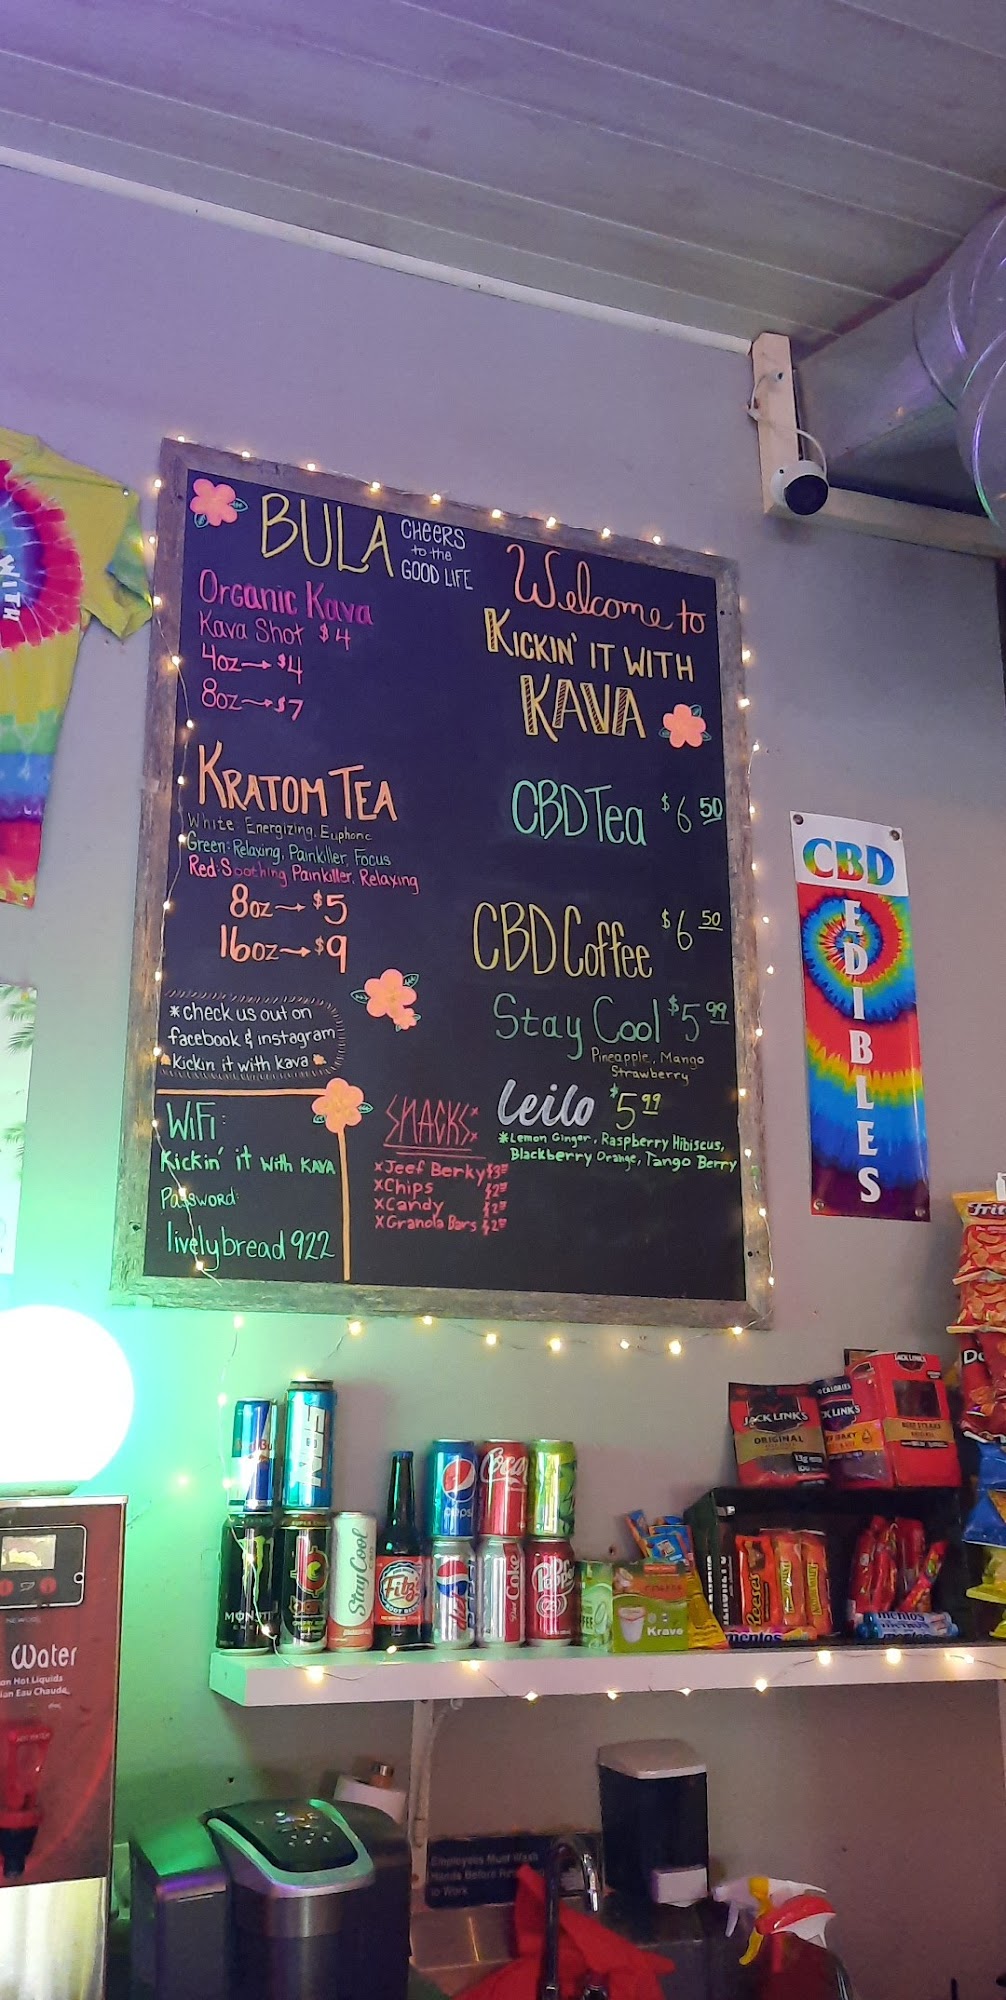 BULA CHEERS
to the
GOOD LIFE
Organic Kava
Kava Shot $4
4oz → $4
8oz → $7
KRATOM TEA
White Energizing, Euphoric
Green: Relaxing, Painkiller, Focus
Red: Soothing Painkiller, Relaxing
8oz → $5
16oz → $9
*check us out on
facebook & instagram
kickin it with kava
WiFi:
Kickin' it with KAVA
Password:
livelybread 922
Welcome to
KICKIN' IT WITH
KAVA
CBD Tea $6 50
CBD Coffee $6 50
Stay Cool $5 99
Pineapple, Mango
Strawberry
Leilo $5 99
*Lemon Ginger, Raspberry Hibiscus,
Blackberry Orange, Tango Berry
SNACKS
xJeef Berky
xChips
xCandy
xGranola Bars
WITH
CBD
EDIBLES
JACK LINK'S
ORIGINAL
JACK LINK'S
Stay Cool
Fitz's
PEPSI
Coke
Dr Pepper
23
MONSTER
Krave
Reese's
mentos
mentos
Water
on Hot Liquids
Employees Must Wash
Hands Before
to Work